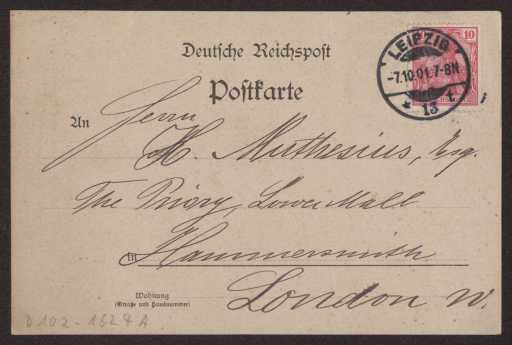 Deutsche Reichspost
Postkarte
10
LEIPZIG
-7.10.01.7-8N
* 13 t.
An Herrn
H. Muthesius, Esq.
The Priory, Lower Mall
in Hammersmith
Wohnung
(Straße und Hausnummer)
London W.
D 102-1627 A